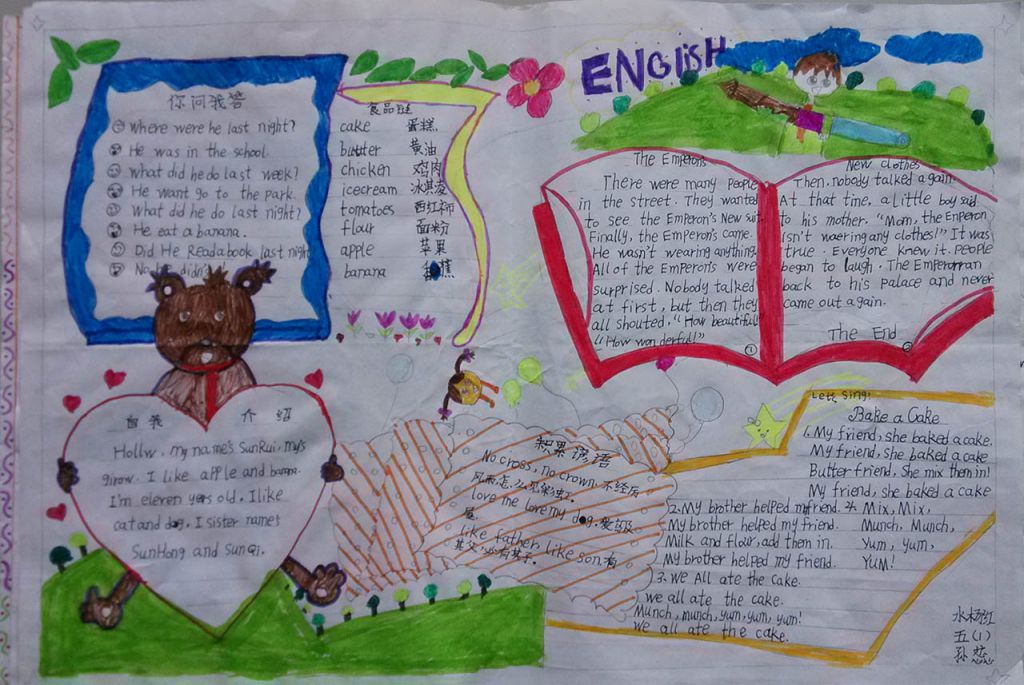 ENGlISH
你问我答
Where were he last night?
He was in the school.
what did he do last week?
He want go to the park.
What did he do last night?
He eat a banana.
Did He Read a book last night
No he didn't
食品链
cake 蛋糕
butter 黄油
chicken 鸡肉
icecream 冰淇凌
tomatoes 西红柿
flour 面粉
apple 苹果
banana 蕉
The Emperor's
There were many people
in the street. They wanted
to see the Emperor's New suit
Finally, the Emperor's came.
He wasn't wearing anything.
All of the Emperor's were
surprised. Nobody talked
at first, but then they
all shouted, "How beautiful!
"How wonderful!"
①
New clothes
Then, nobody talked again.
At that time, a little boy said
to his mother. "Mom, the Enperon
isn't waering any clothes!" It was
true. Everyone knew it. People
began to laugh. The Emperor ran
back to his palace and never
came out again.
The End
②
自我 介绍
Hollw, my name's SunRui, my's
I like apple and
I'm eleven yers old, I like
cat and dog. I sister names
SunHong and SunQi.
积累 谚语
No cross, no crown. 不经历
风雨,怎么见彩虹.
love me love my dog. 爱屋及
屋.
Like father, like son. 有
其父,必有其子.
Let's Sing!
Bake a Cake
1. My friend, she baked a cake.
My friend, she baked a cake
Butter friend, She mix them in!
My friend, she baked a cake
2. My brother helped my friend.
My brother helped my friend.
Milk and flour, add them in.
My brother helped my friend.
3. we All ate the cake.
we all ate the cake.
Munch, munch, yum, yum, yum!
we all ate the cake.
Mix, Mix,
Munch, Munch,
Yum, yum,
YUM!
五(1)
孙